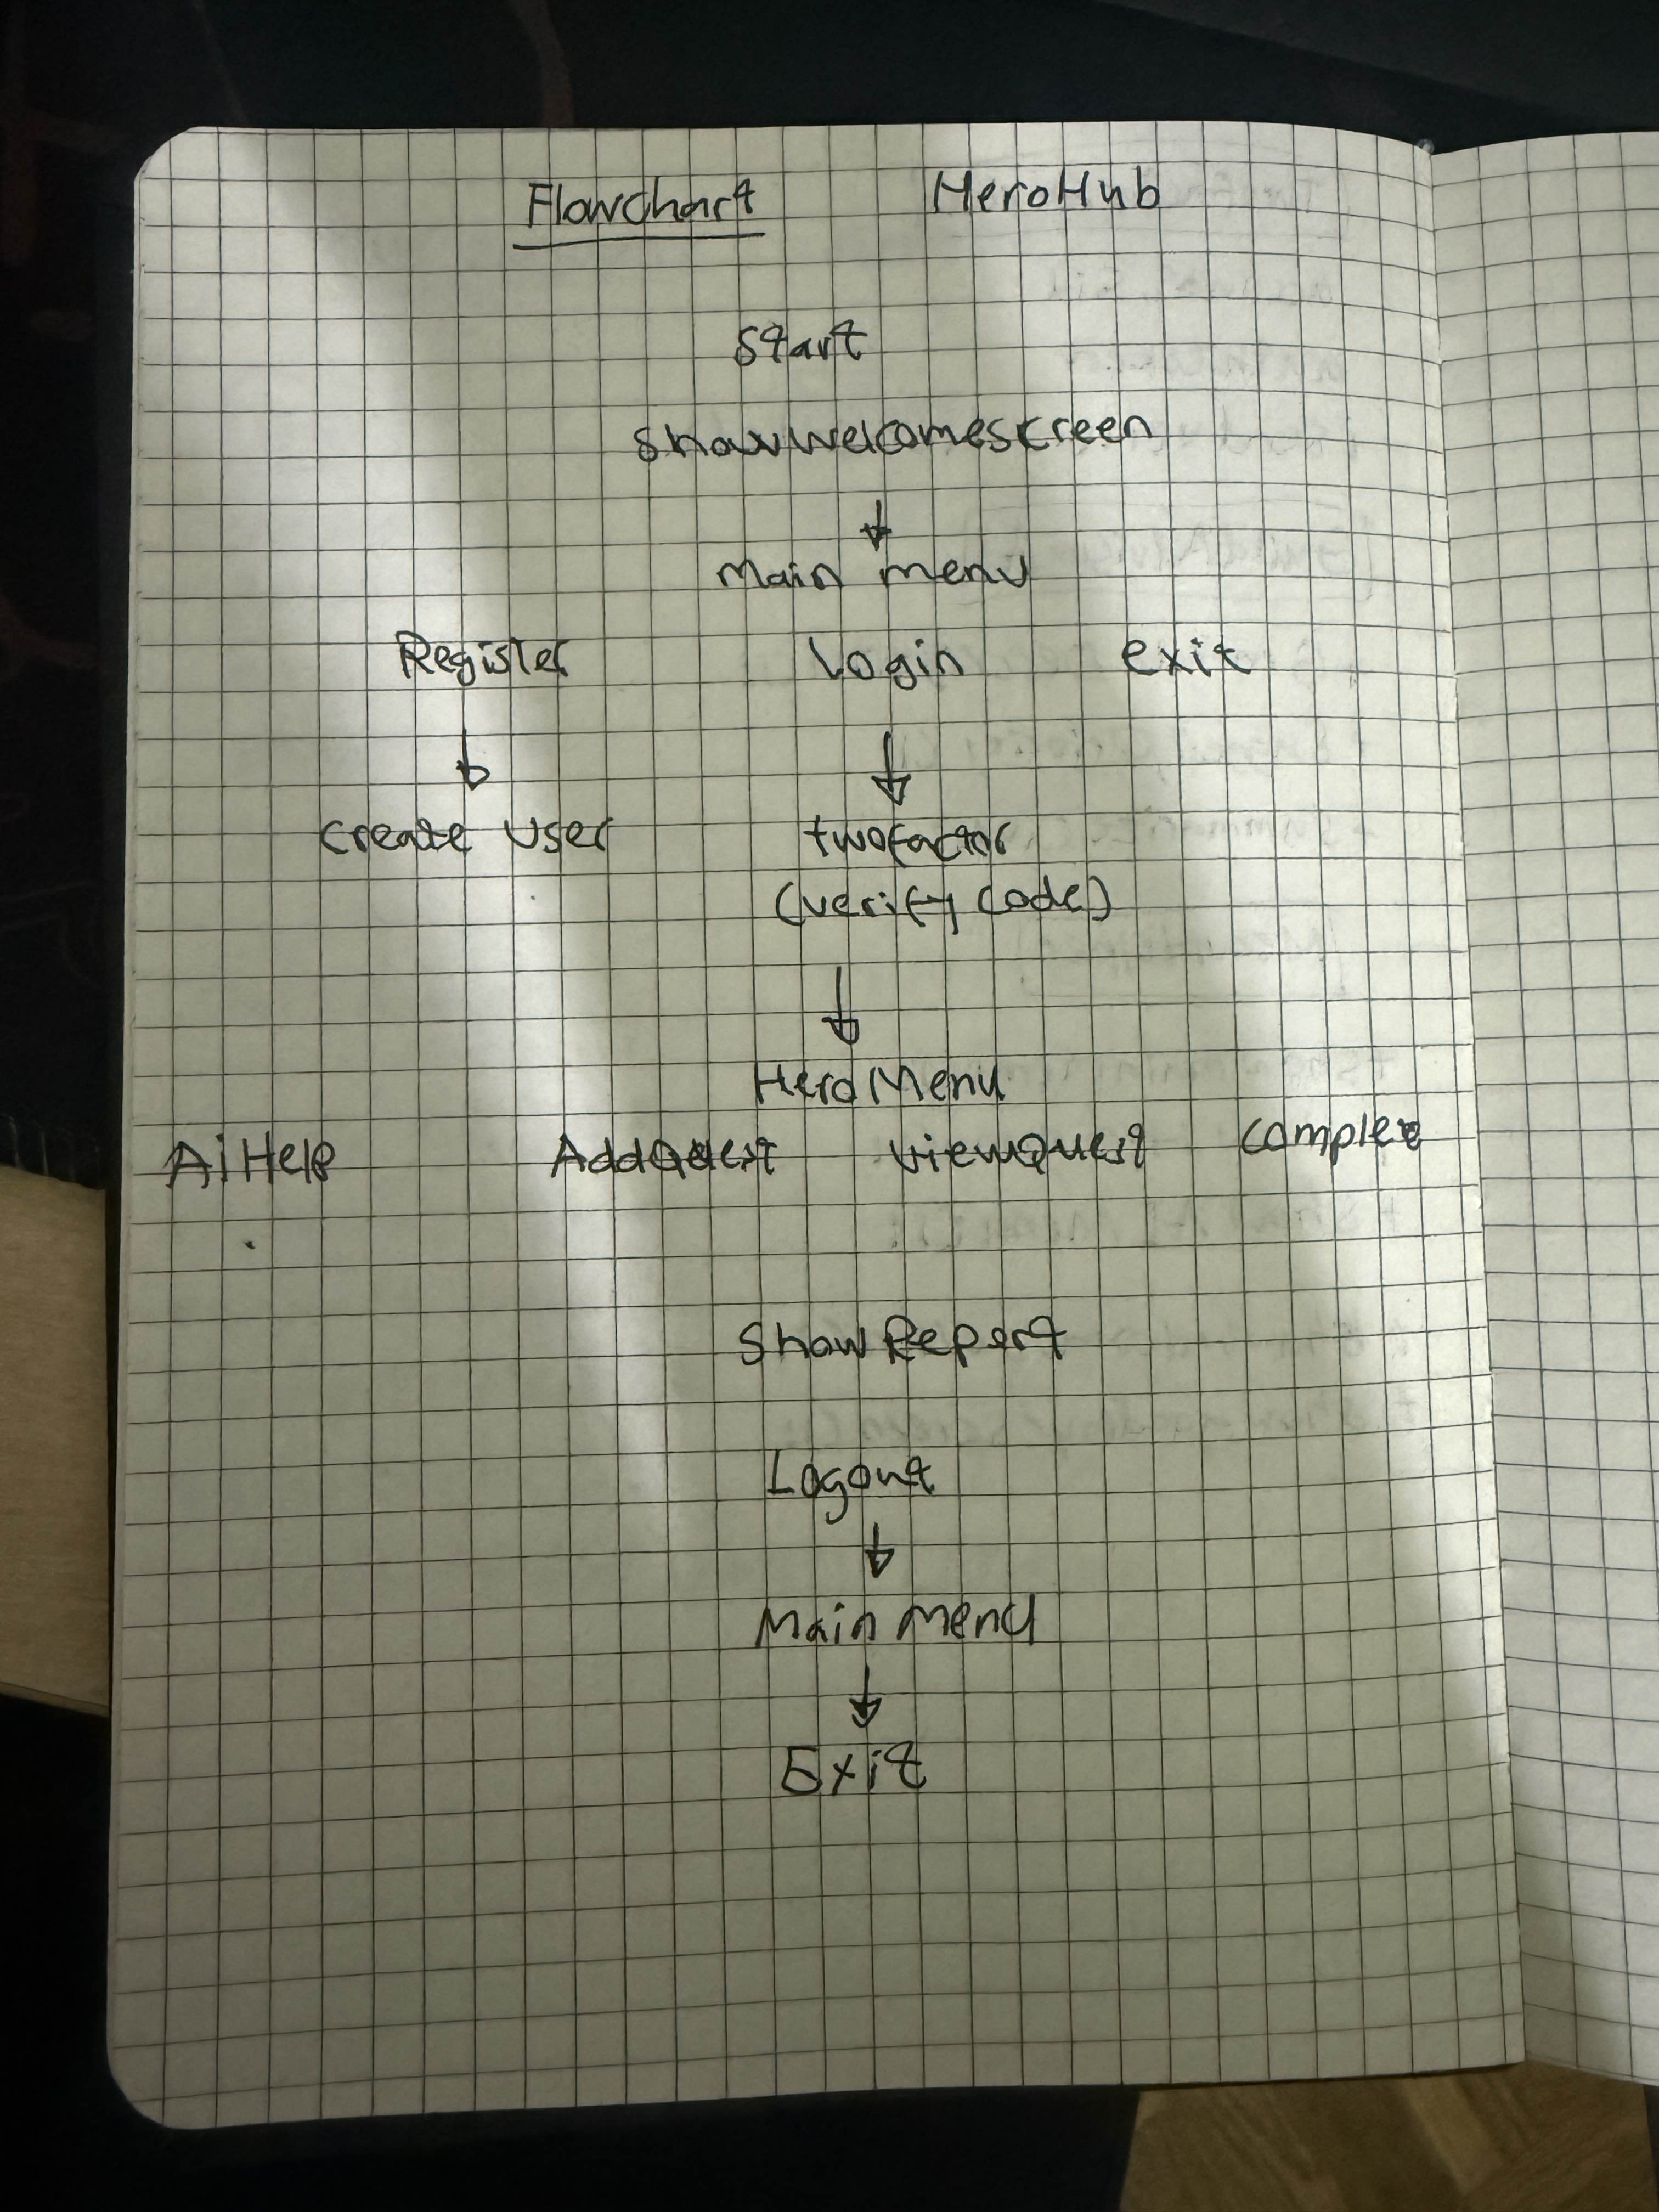 Flowchart HeroHub
Start
showwelcomescreen
main menu
Register Login exit
create user twofactor
(verify code)
HeroMenu
AiHelp AddQuest viewQuest complete
show Report
Logout
Main menu
Exit